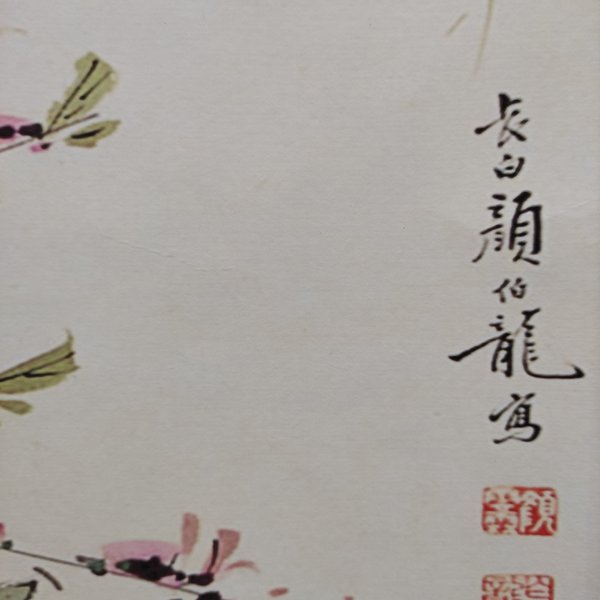 長白顏伯龍寫